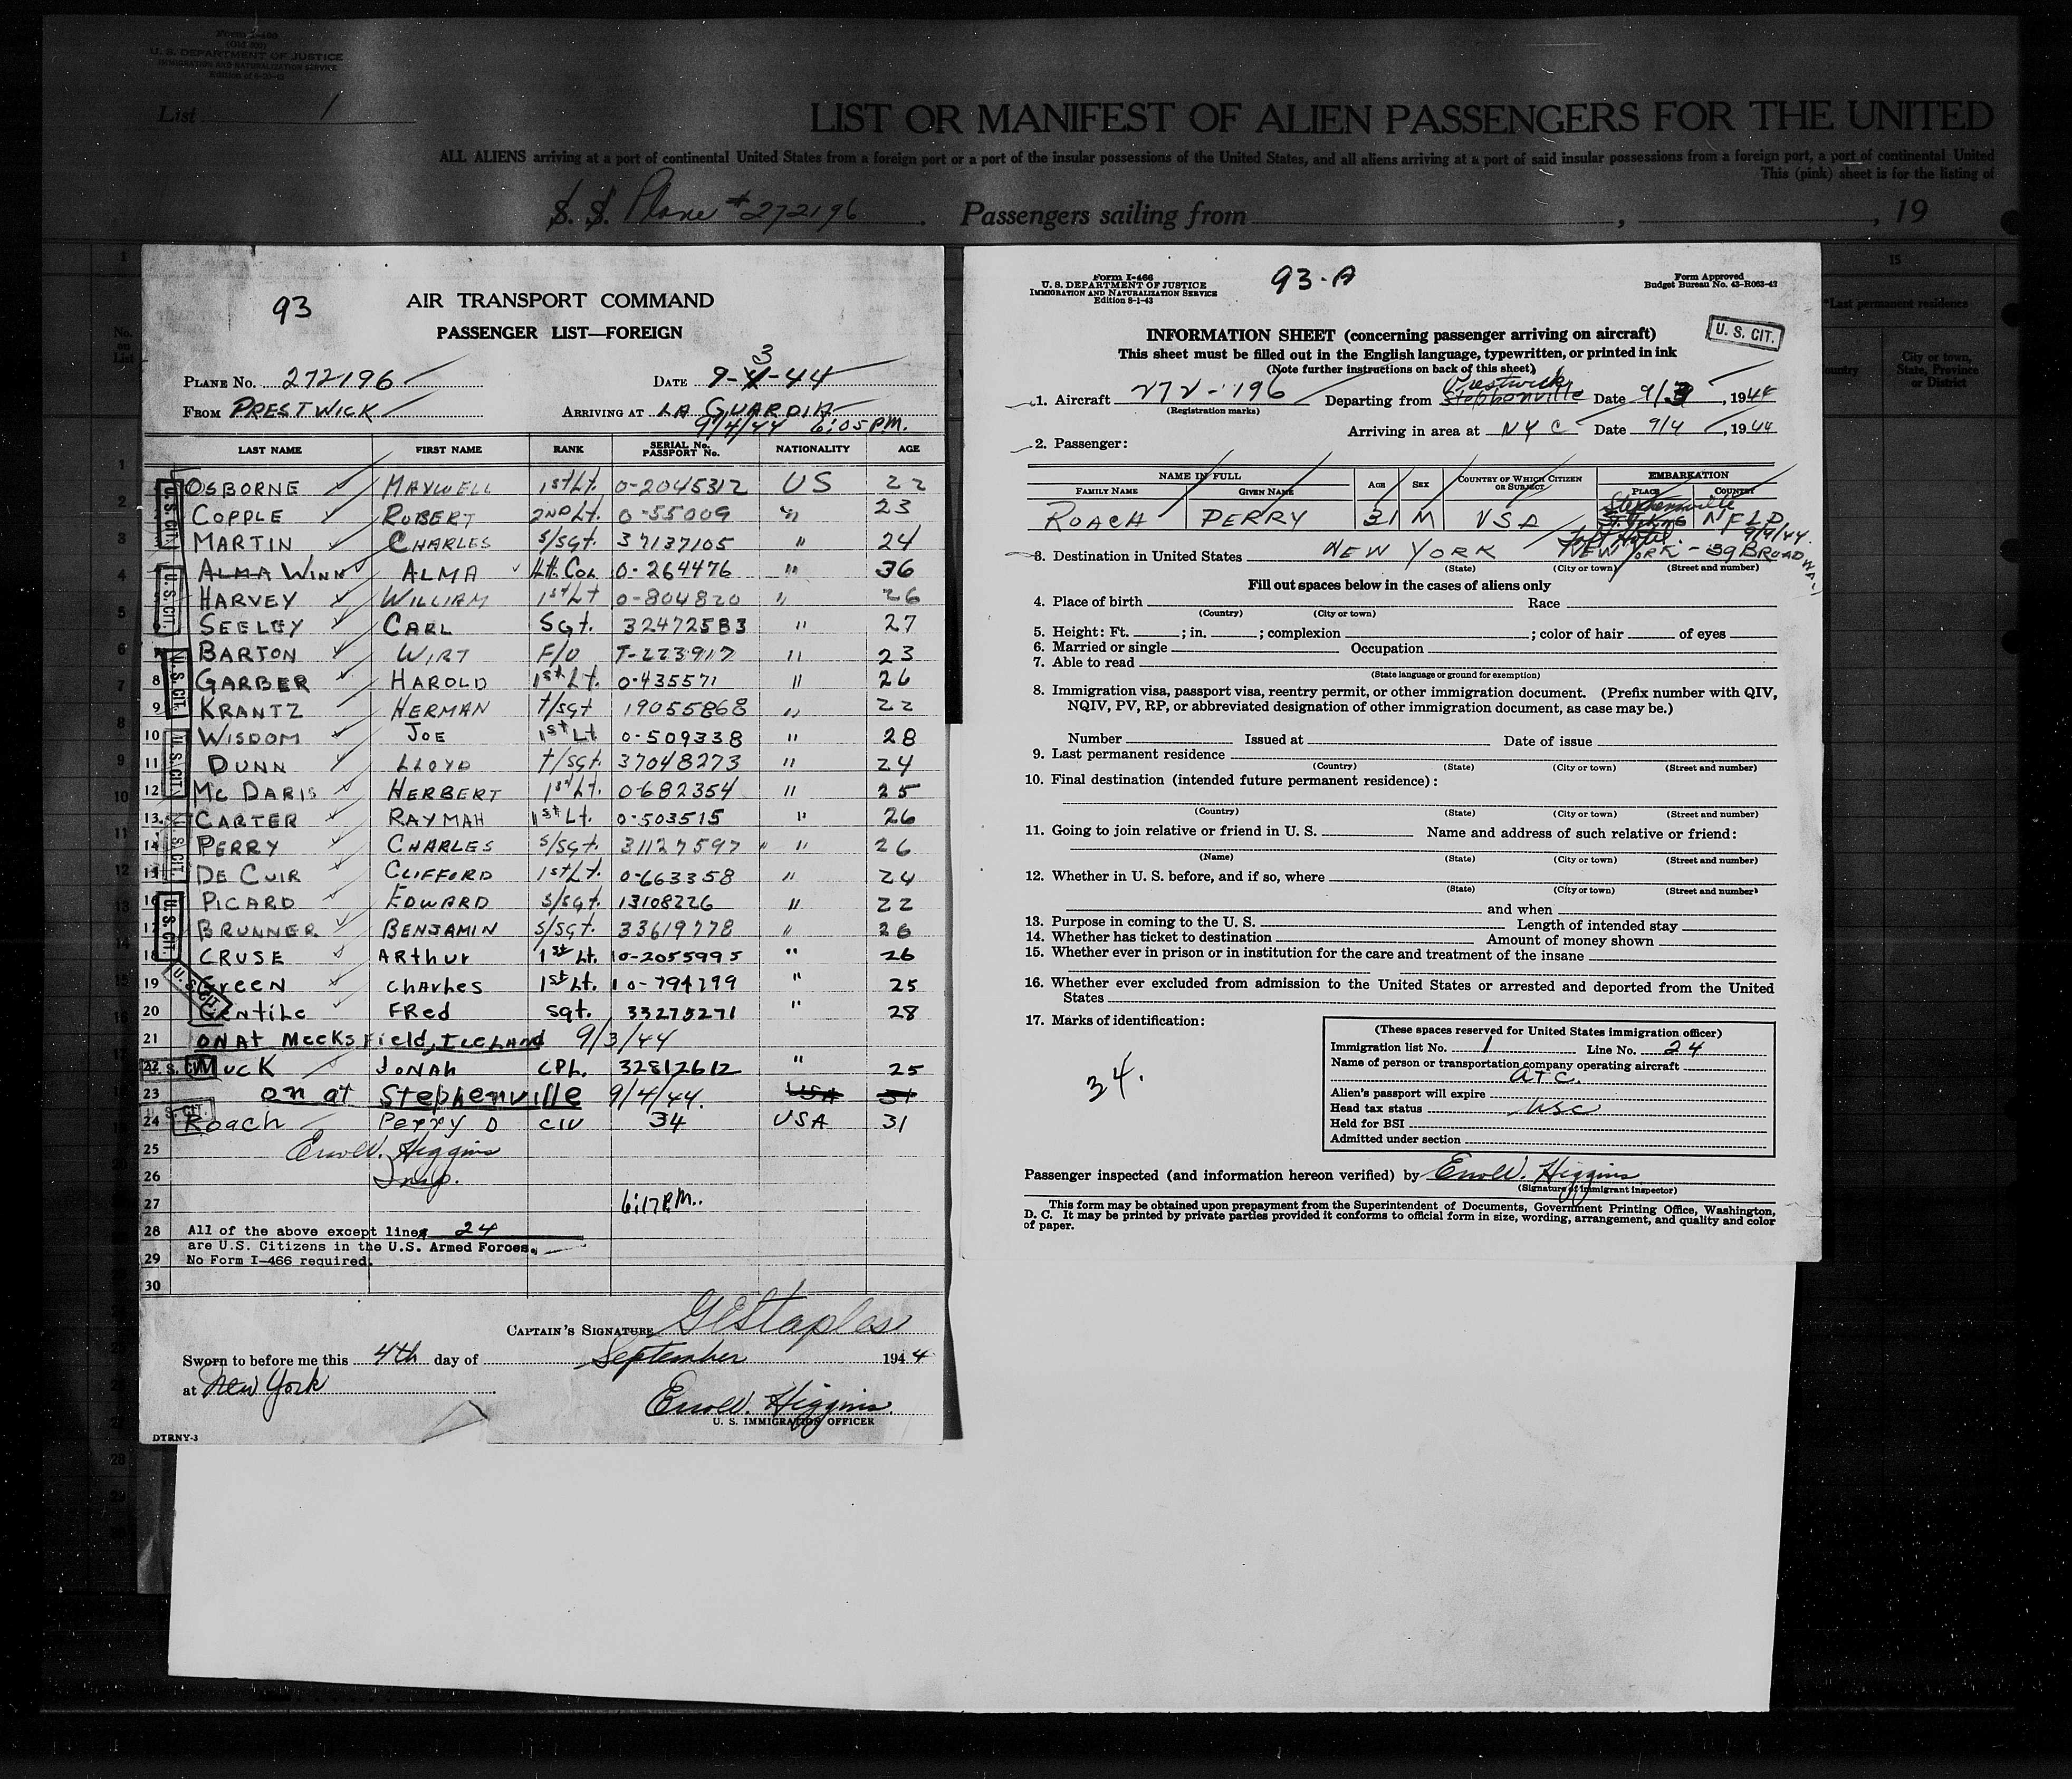 Form I-400
(Old 500)
U. S. DEPARTMENT OF JUSTICE
IMMIGRATION AND NATURALIZATION SERVICE
List 1
LIST OR MANIFEST OF ALIEN PASSENGERS FOR THE UNITED
ALL ALIENS arriving at a port of continental United States from a foreign port or a port of the insular possessions of the United States, and all aliens arriving at a port of said insular possessions from a foreign port, a port of continental United
This (pink) sheet is for the listing of
S. S. Plane #272196 Passengers sailing from , , 19
93
AIR TRANSPORT COMMAND
PASSENGER LIST—FOREIGN
3
PLANE No. 272196 DATE 9-4-44
FROM PRESTWICK ARRIVING AT LA GUARDIA
9/4/44 6:05 PM.
LAST NAME FIRST NAME RANK SERIAL No. PASSPORT No. NATIONALITY AGE
OSBORNE MAXWELL 1st Lt. 0-2045312 US 22
COPPLE ROBERT 2ND Lt. 0-55009 " 23
MARTIN CHARLES S/Sgt. 37137105 " 24
ALMA WINN ALMA Lt. Col 0-264476 " 36
HARVEY WILLIAM 1st Lt 0-804820 " 26
SEELEY CARL Sgt. 32472583 " 27
BARTON WIRT F/O T-223917 " 23
8 GARBER HAROLD 1st Lt. 0-435571 " 26
9 KRANTZ HERMAN T/Sgt 19055868 " 22
10 WISDOM JOE 1st Lt 0-509338 " 28
11 DUNN LLOYD T/Sgt. 37048273 " 24
12 MC DARIS HERBERT 1st Lt. 0-682354 " 25
13 CARTER RAYMAH 1st Lt. 0-503515 " 26
14 PERRY CHARLES S/Sgt. 31127597 " 26
15 DE CUIR CLIFFORD 1st Lt. 0-663358 " 24
16 PICARD EDWARD S/Sgt. 13108226 " 22
17 BRUNNER BENJAMIN S/Sgt. 33619778 " 26
18 CRUSE ARthur 1st Lt. 0-2055995 " 26
19 Green Charles 1st Lt. 0-794799 " 25
20 Gentile FRed Sgt. 33275271 " 28
21 ON AT Meeks Field, Iceland 9/3/44
22 Muck Jonah CPL. 32812612 " 25
23 on at Stephenville 9/4/44. USA 31
24 Roach Perry D CIV 34 USA 31
25 Errol W. Higgins
26 Insp.
27 6:17 P.M.
28 All of the above except lines 24
are U.S. Citizens in the U.S. Armed Forces.
29 No Form I-466 required.
30
CAPTAIN'S SIGNATURE G E Staples
Sworn to before me this 4th day of September 1944
at New York
Errol W. Higgins
U. S. IMMIGRATION OFFICER
DTRNY-3
U. S. CIT.
U. S. CIT.
U. S. CIT.
U. S. CIT.
U. S. CIT.
U. S. CIT.
U. S. CIT.
U. S. CIT.
U. S. CIT.
Form I-466
U. S. DEPARTMENT OF JUSTICE
IMMIGRATION AND NATURALIZATION SERVICE
Edition 8-1-43
93-A
Form Approved
Budget Bureau No. 43-R063-42
U. S. CIT.
INFORMATION SHEET (concerning passenger arriving on aircraft)
This sheet must be filled out in the English language, typewritten, or printed in ink
(Note further instructions on back of this sheet)
Prestwick
1. Aircraft 272-196 Departing from Stephenville Date 9/3, 1944
(Registration marks)
Arriving in area at NYC Date 9/4, 1944
2. Passenger:
NAME IN FULL EMBARKATION
FAMILY NAME GIVEN NAME AGE SEX COUNTRY OF WHICH CITIZEN OR SUBJECT PLACE COUNTRY
Stephenville
ROACH PERRY 31 M USA NFLD
9/4/44.
3. Destination in United States NEW YORK NEW YORK - 39 BROADWAY
(State) (City or town) (Street and number)
Fill out spaces below in the cases of aliens only
4. Place of birth Race
(Country) (City or town)
5. Height: Ft. ; in. ; complexion ; color of hair of eyes
6. Married or single Occupation
7. Able to read
(State language or ground for exemption)
8. Immigration visa, passport visa, reentry permit, or other immigration document. (Prefix number with QIV,
NQIV, PV, RP, or abbreviated designation of other immigration document, as case may be.)
Number Issued at Date of issue
9. Last permanent residence
(Country) (State) (City or town) (Street and number)
10. Final destination (intended future permanent residence):
(Country) (State) (City or town) (Street and number)
11. Going to join relative or friend in U. S. Name and address of such relative or friend:
(Name) (State) (City or town) (Street and number)
12. Whether in U. S. before, and if so, where
(State) (City or town) (Street and number)
and when
13. Purpose in coming to the U. S. Length of intended stay
14. Whether has ticket to destination Amount of money shown
15. Whether ever in prison or in institution for the care and treatment of the insane
16. Whether ever excluded from admission to the United States or arrested and deported from the United
States
17. Marks of identification:
34.
(These spaces reserved for United States immigration officer)
Immigration list No. 1 Line No. 24
Name of person or transportation company operating aircraft
A.T.C.
Alien's passport will expire
Head tax status USC
Held for BSI
Admitted under section
Passenger inspected (and information hereon verified) by Errol W. Higgins
(Signature of immigrant inspector)
This form may be obtained upon prepayment from the Superintendent of Documents, Government Printing Office, Washington,
D. C. It may be printed by private parties provided it conforms to official form in size, wording, arrangement, and quality and color
of paper.
15
*Last permanent residence
City or town,
State, Province
or District
No.
on
List